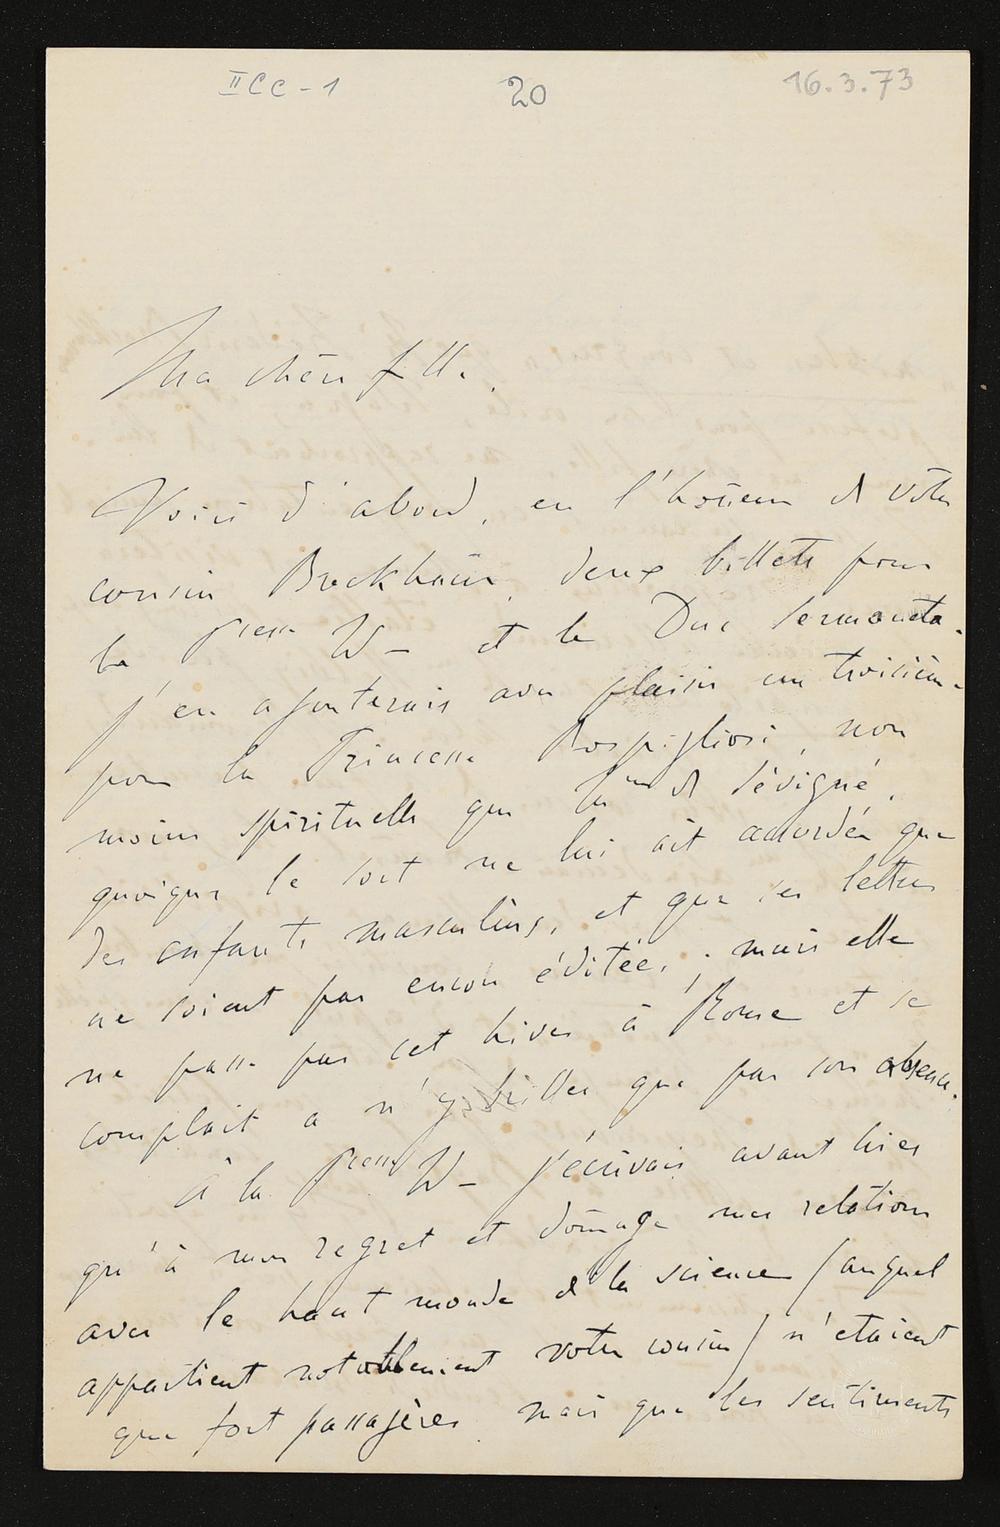 II C c - 1 20 16.3.73
Ma chère fille.
Voici d'abord, en l'hoñeur de votre
cousin Brockhaus, deux billets pour
la Pcesse W— et le Duc Sermoneta.
J'en ajouterais avec plaisir un troisième
pour la Princesse Rospigliosi, non
moins spirituelle que Me de Sévigné,
quoique le sort ne lui ait accordée que
des enfants masculins, et que ses lettres
ne soient pas encore éditées; mais elle
ne passe pas cet hiver à Rome et se
complait a n'y briller que par son absence.
À la Pcesse W— j'écrivais avant hier
qu'à mon regret et domage mes relations
avec le haut monde de la science (auquel
appartient notablement votre cousin) n'etaient
que fort passagères mais que les sentiments